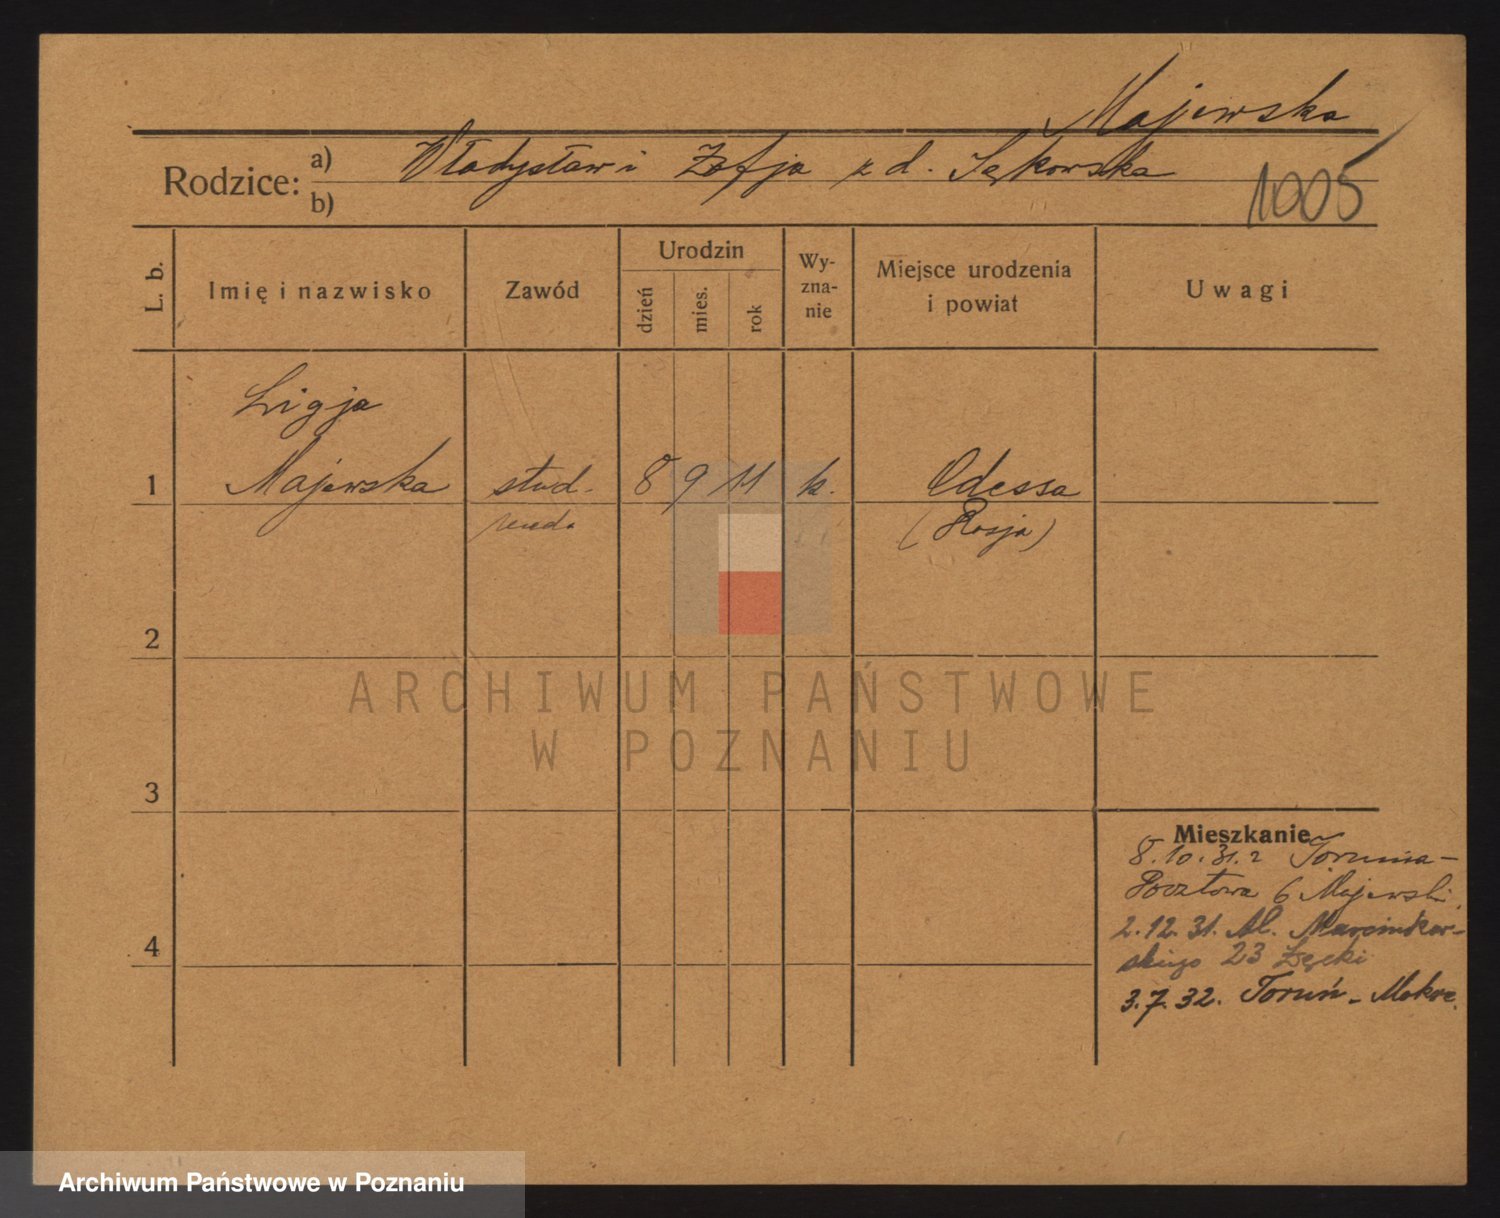 Majewska
Rodzice: a) Władysław i Zofja z d. Sękowska
b)
1005
L. b.
Imię i nazwisko
Zawód
Urodzin
dzień
mies.
rok
Wy-
zna-
nie
Miejsce urodzenia
i powiat
Uwagi
Ligja
1 Majewska stud. 8 9 11 k. Odessa
(Rosja)
2
ARCHIWUM PAŃSTWOWE
W POZNANIU
3
Mieszkanie
8.10.31. z Torunia-
Pocztowa 6 Majewski.
4
2.12.31. Al. Marcinkow-
skiego 23 Łęcki
3.7.32. Toruń - Mokre.
Archiwum Państwowe w Poznaniu